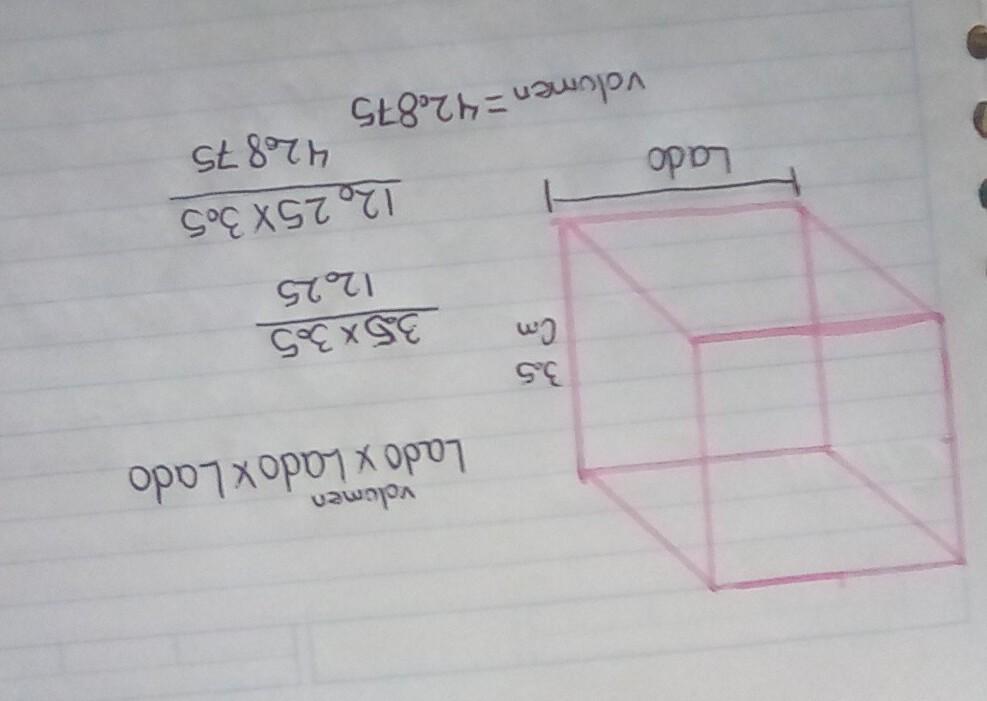 volumen
Lado x Lado x Lado
3.5
cm
3.5 x 3.5
12.25
12.25 x 3.5
42.875
Lado
volumen = 42.875